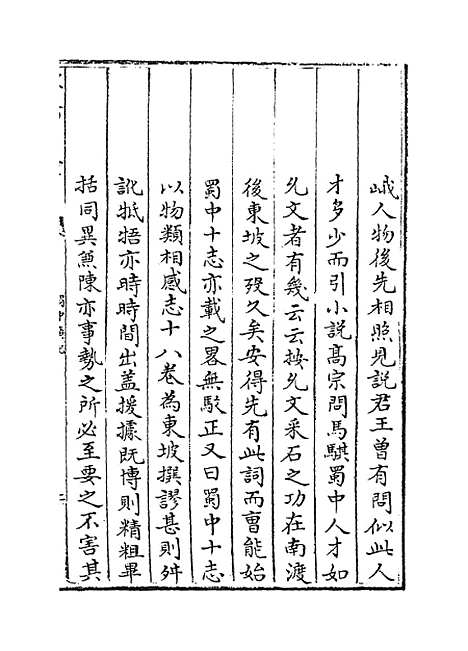 峨人物後先相照見說君王曾有問似此人
才多少而引小說髙宗問馬騏蜀中人才如
允文者有幾云云按允文采石之功在南渡
後東坡之殁久矣安得先有此詞而曹能始
蜀中十志亦載之畧無駮正又曰蜀中十志
以物類相感志十八卷為東坡撰謬甚則舛
訛牴牾亦時時間出盖援據既博則精粗畢
括同異兼陳亦事勢之所必至要之不害其